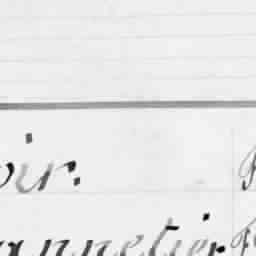 oir.
annetier